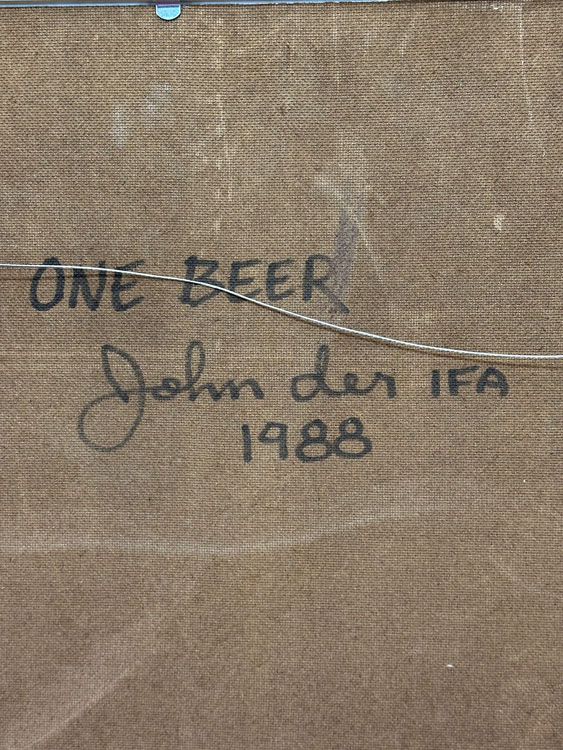 ONE BEER
John der IFA
1988